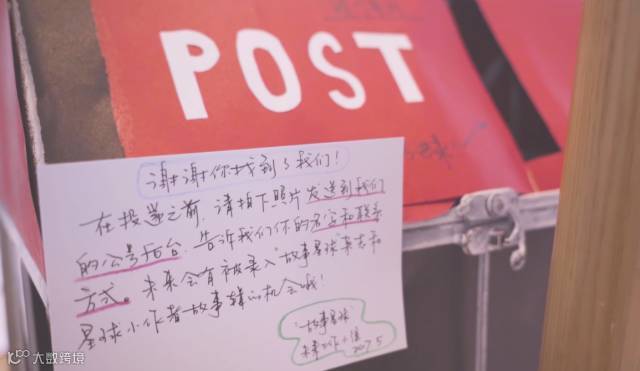 POST
谢谢你找到了我们!
在投递之前,请拍下照片发送到我们
的公号后台,告诉我们你的名字和联系
方式。未来会有被录入"故事星球"杂志和
星球小作者故事辑的机会哦!
故事星球
大数跨境